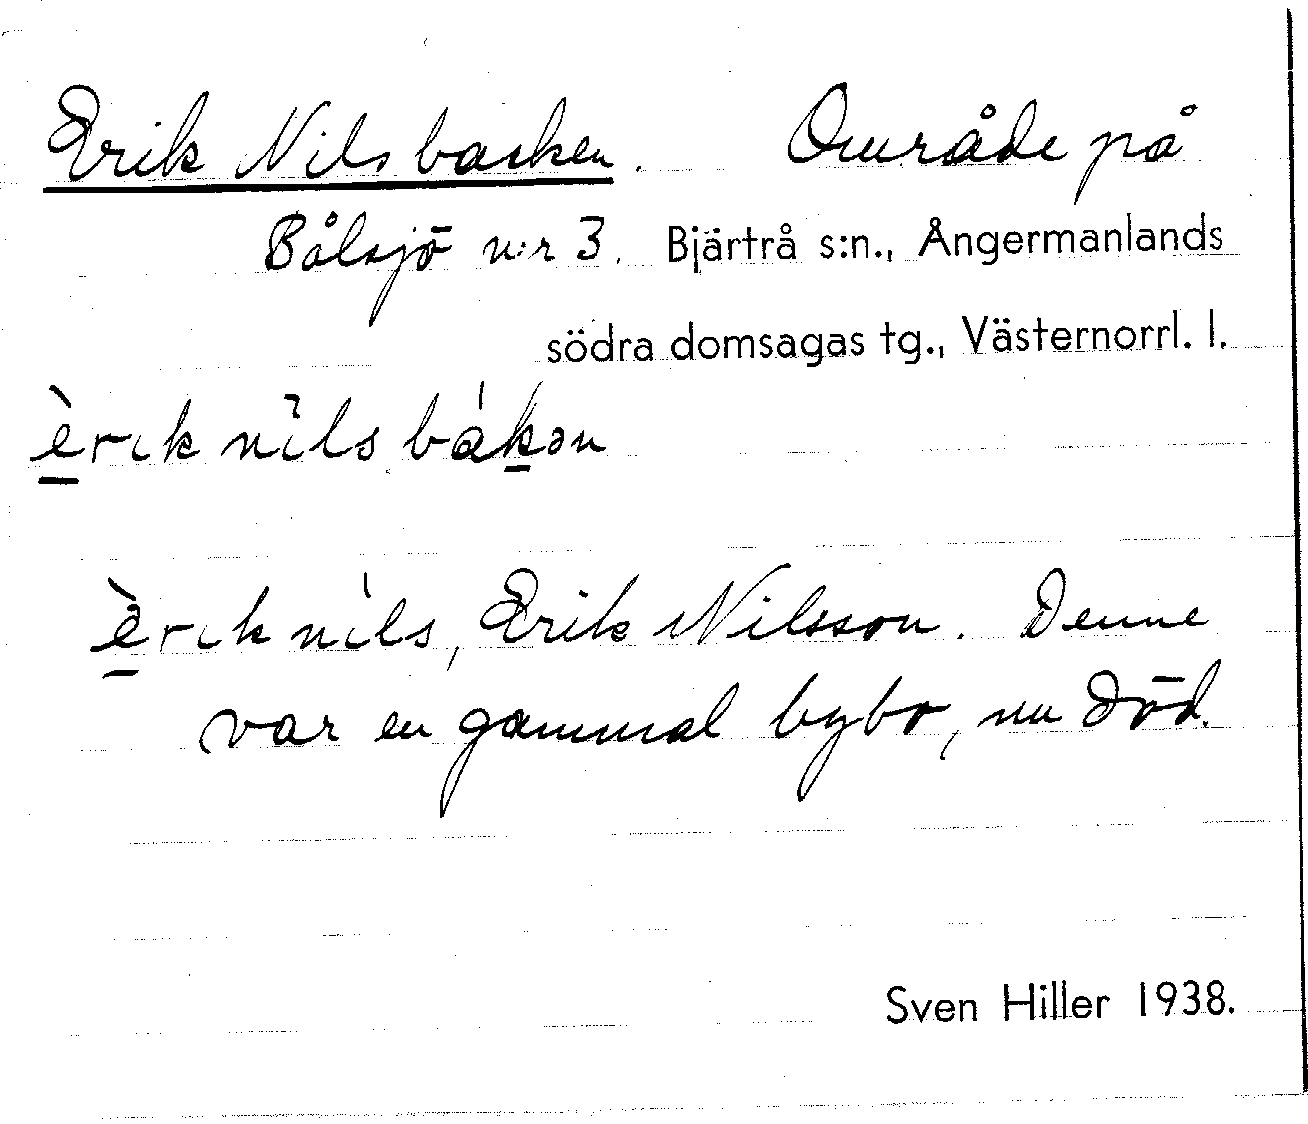 Erik Nilsbacken. Område på
Bålsjö n:r 3. Bjärtrå s:n., Ångermanlands
södra domsagas tg., Västernorrl. l.
èrik nils bákən
èrik nils, Erik Nilsson. Denne
var en gammal bybo, nu död.
Sven Hiller 1938.